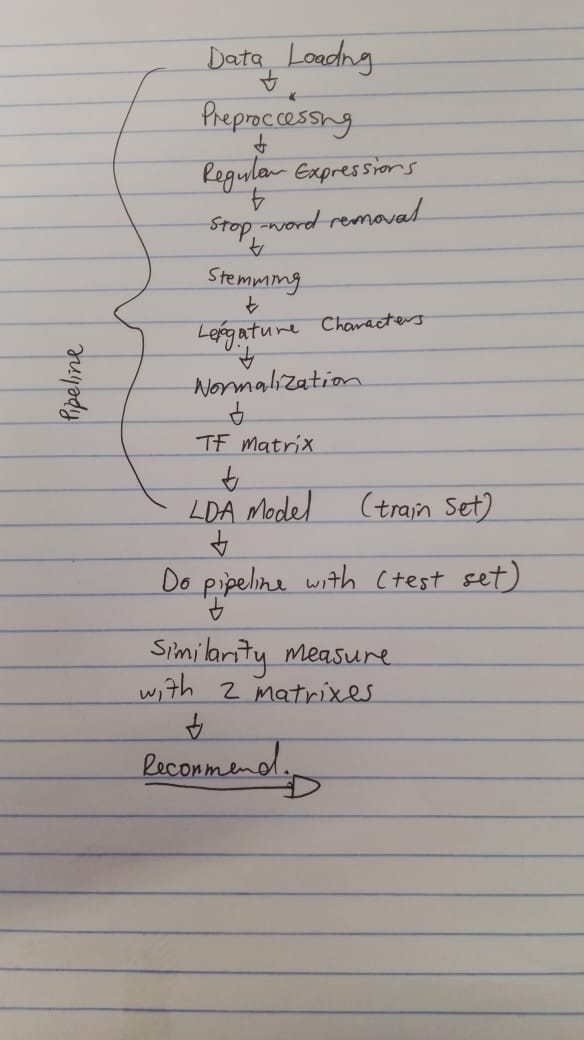 Data Loading
Preproccessng
Regular Expressions
Stop-word removal
Stemming
Leigature Characters
Normalization
TF matrix
LDA Model (train set)
Do pipeline with (test set)
Similarity measure
with 2 matrixes
Recommend.
Pipeline